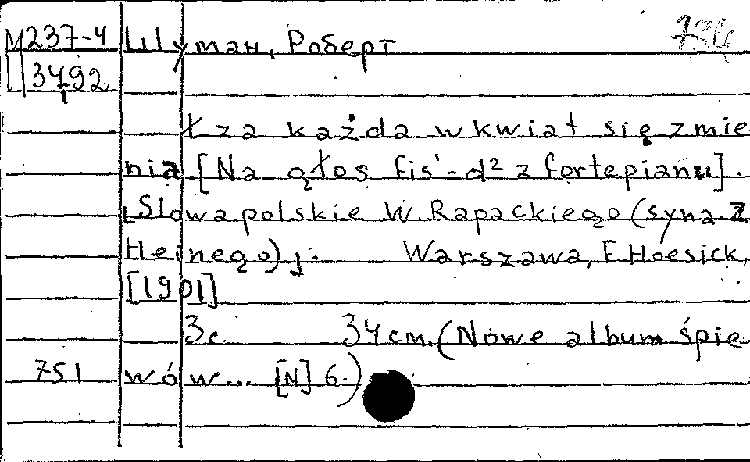 М237-4 Шуман, Роберт
3492
Łza każda w kwiat się zmie
nia [Na głos fis¹-d² z fortepianu].
Słowa polskie W Rapackiego (syna z
Heinego). Warszawa, F. Hoesick,
[1901]
3с 34 cm. (Nowe album śpie
751 wów... [N] 6.)